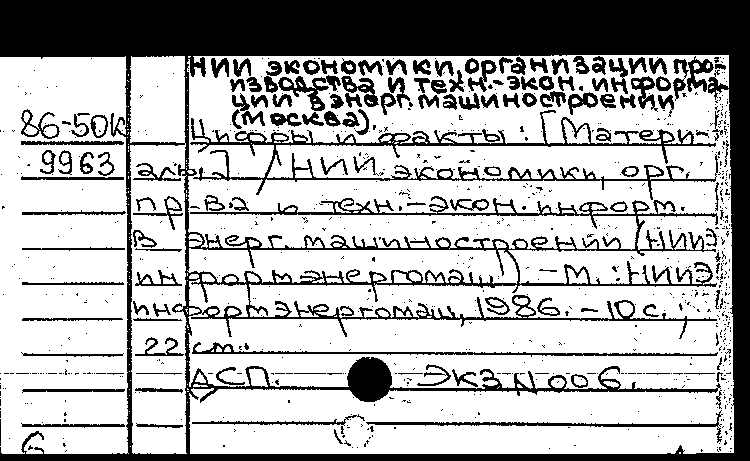 НИИ экономики, организации про-
изводства и техн.-экон. информа-
ции в энерг. машиностроении
(Москва).
86-50К Цифры и факты : [Матери-
9963 алы] / НИИ экономики, орг.
пр-ва и техн.-экон. информ.
в энерг. машиностроении (НИИЭ
информэнергомаш). - М. : НИИЭ
информэнергомаш, 1986. - 10 с. ;
22 см.
ДСП. ЭКЗ N 006.